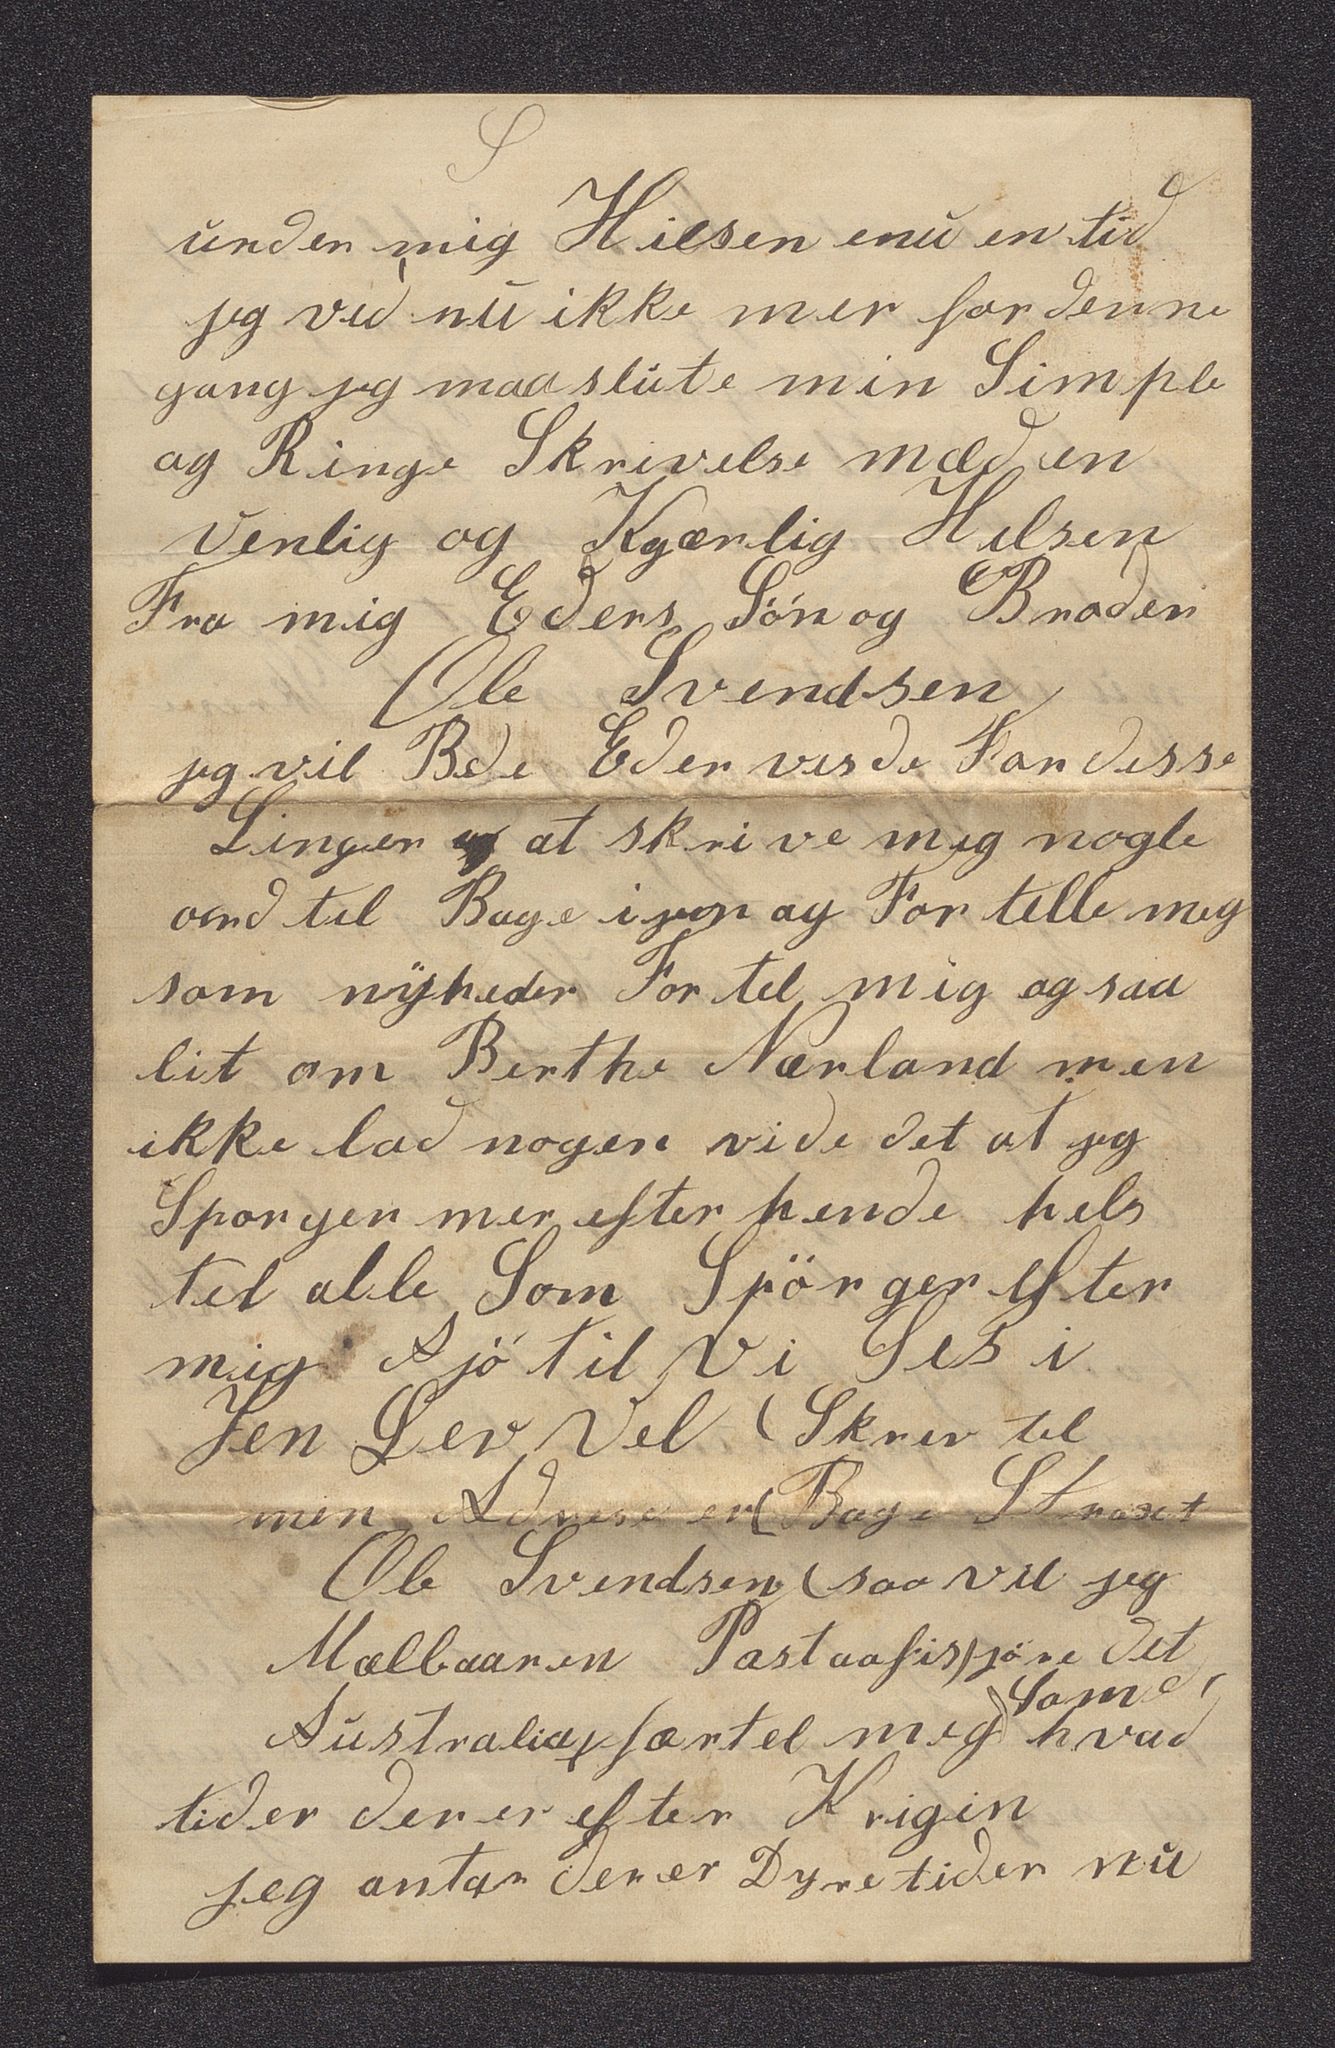 S
under mig Hilsen enu en tid
jeg ved nu ikke mer for denne
gang jeg maa slute min Simple
og Ringe Skrivelse mæd en
Venlig og Kgærlig Helsen
Fra mig Eders Sön og Broder
Ole Svendsen
jeg vil Bede Eder verde For desse
Linger at skrive meg nogle
ord til Bage i jen og For telle meg
som nyheder For tel mig og saa
lit om Berthe Nærland men
ikke lad nogen vide det at jeg
Sporger mer efter hende hels
til alle Som Spörger efter
mig Ajö til Vi Ses i
Jen Lev Vel (Skrev til
men Adrese er (Bage Straxt
Ole Svendsen (saa vil jeg
Mælbaaren Pastaafis) jöre det
Australia) færtel meg hvad
Same
tider der er efter Krigin
jeg antar der er Dyre tider nu